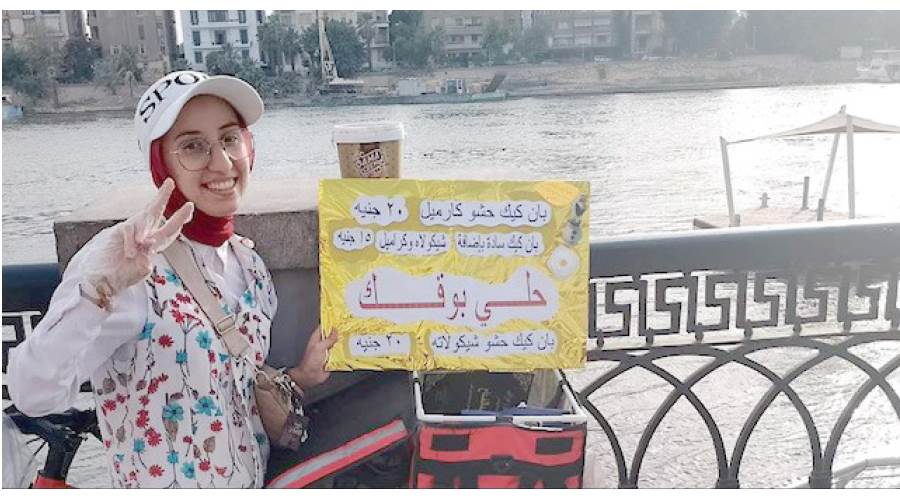 SPO
بان كيك حشو كارميل ٢٠ جنيه
بان كيك سادة بإضافة شيكولاه وكراميل ١٥ جنيه
حلي بوقك
بان كيك حشو شيكولاته ٢٠ جنيه